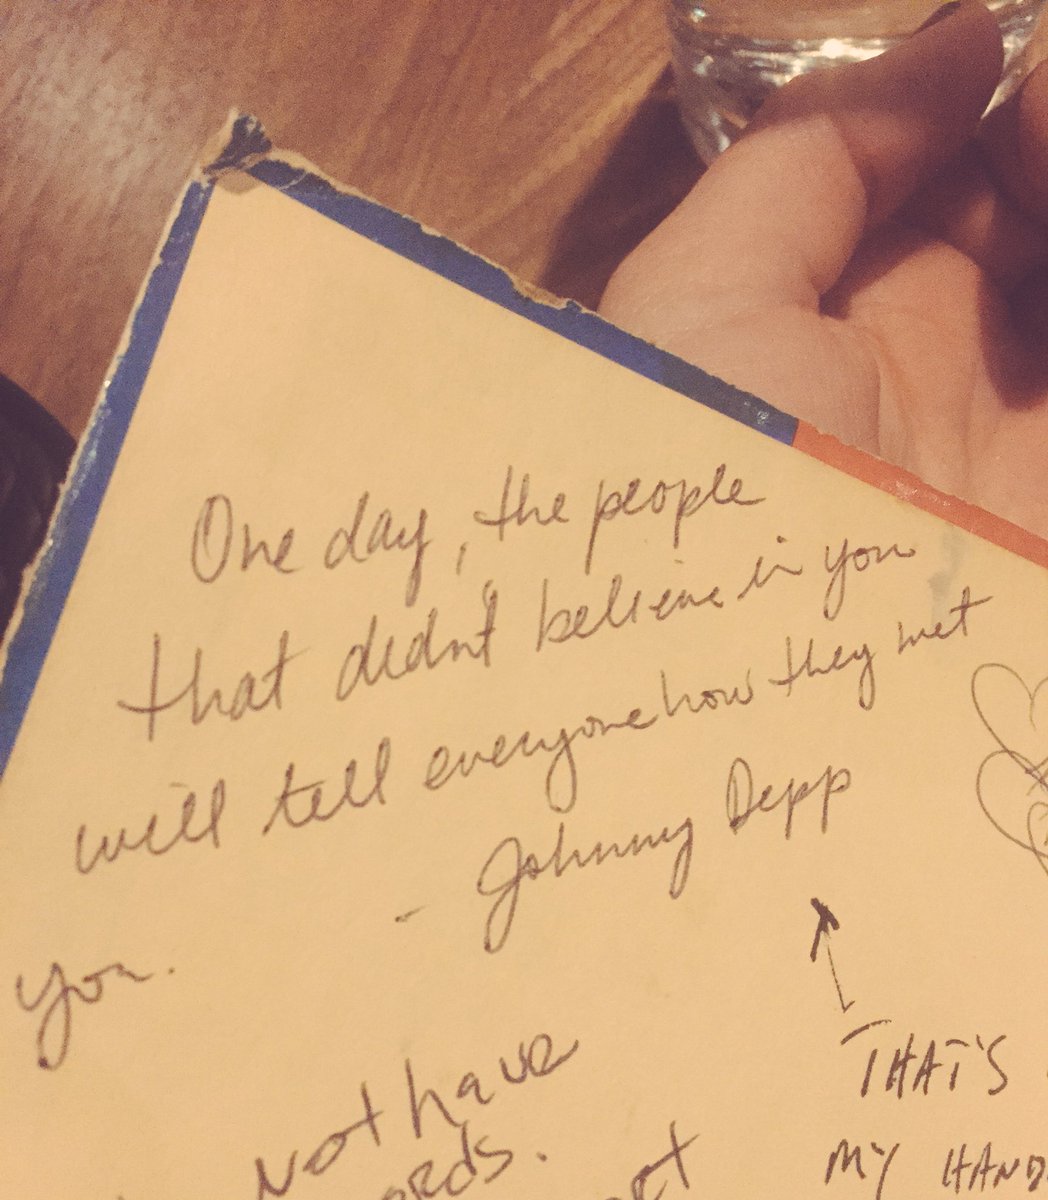 One day, the people
that didn't believe in you
will tell everyone how they met
you.
- Johnny Depp
THAT'S
MY
not have